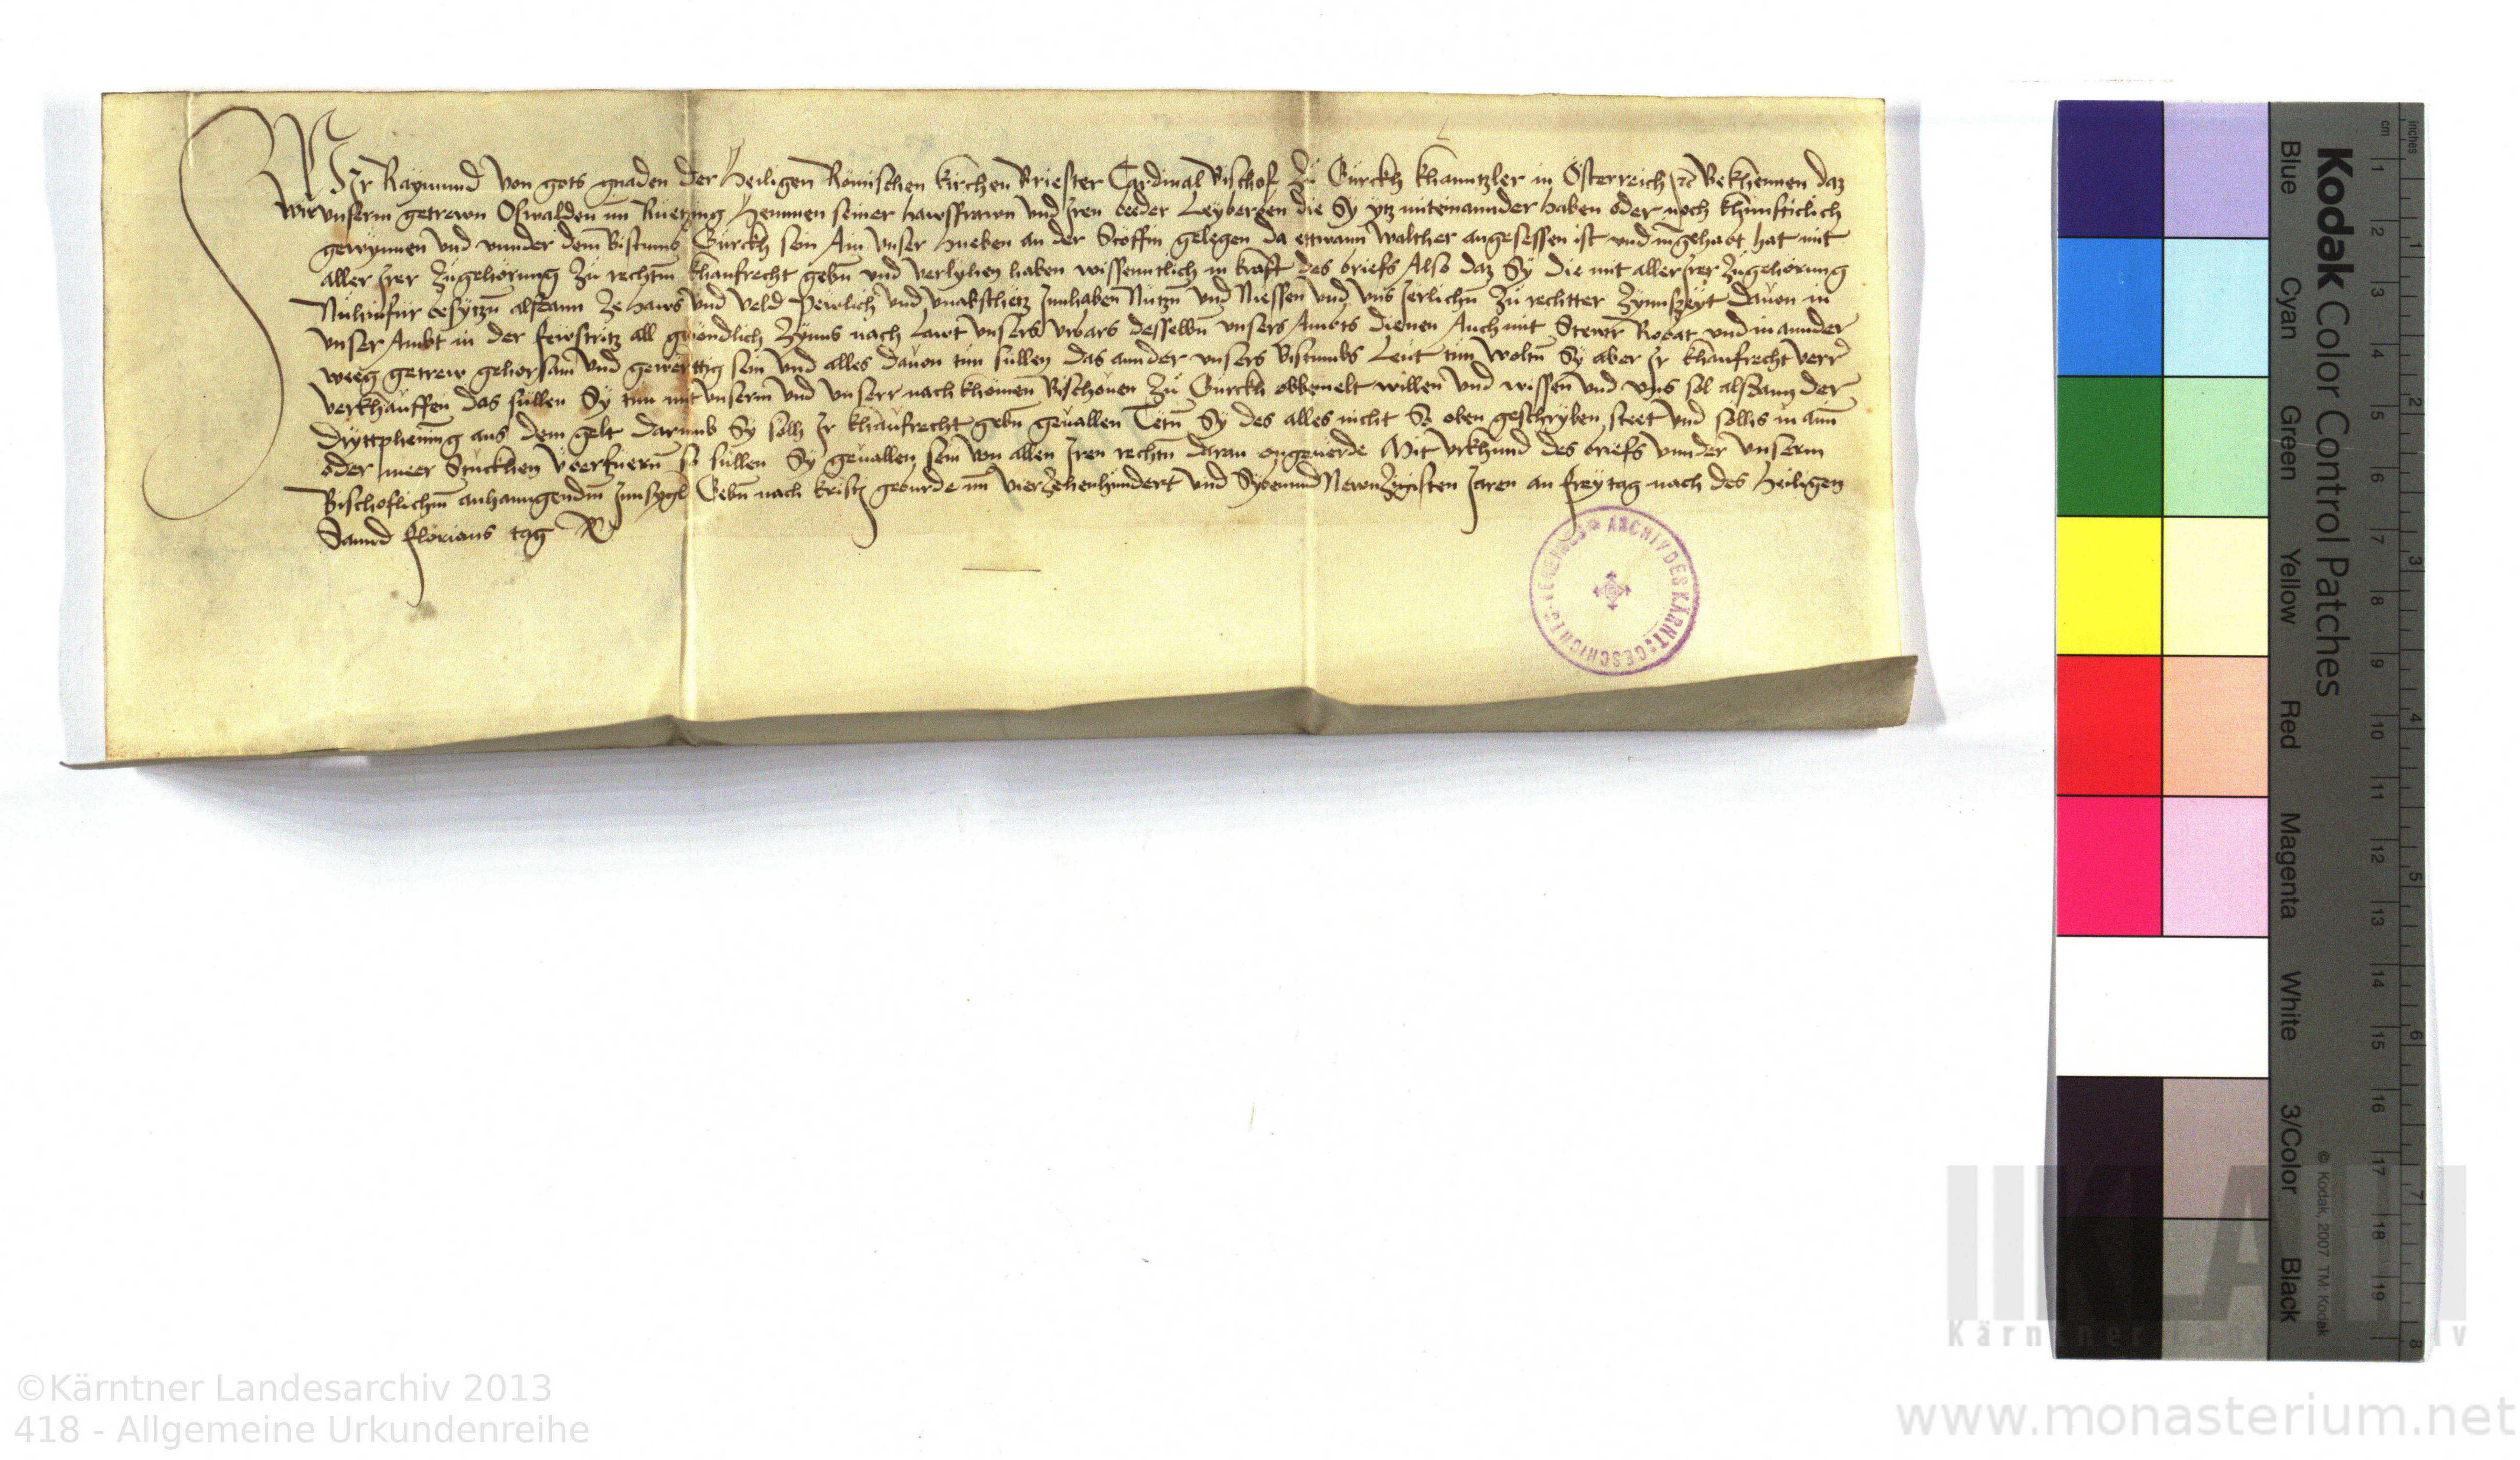 Wir Raymund von gots gnaden der Heiligen Römischen kirchen Briester Cardinal Bischof Zů Gurckh khanntzler in Österreich etc Bekhennen daz
Wir vnserm getrewn Oswalden im Rüetzing Hemmen seiner hawsffrawn vnd Iren beeder Leyberben die Sy ytz miteinannder haben oder noch khunfticlich
gewynnen vnd vnnder dem Bistumb Gurckh sein Ain vnser Hueben an der Stöffin gelegen da ettwann Walther angesessen ist vnd inngehabt hat mit
aller Irer Zůgehörung Zů rechtm khaufrecht gebn vnd verlyhen haben wissenntlich in kraft des briefs Also daz Sy die mit aller Irer Zůgehörung
Nuhinfür besytzn alsdann Ze haws vnd veld Pewlich vnd vnakschetz Innhaben Nutzn vnd Niessen vnd vns Jerlichn Zů rechtter Zynnszeyt dauon in
vnser Ambt in der fewstritz all gwondlich Zynns nach lawt vnsers vrbars desselbn vnsers Ambts dienen Auch mit Stewr Robat vnd in annder
weeg getrew gehorsam vnd gewerttig sein vnd alles dauon tun sullen das annder vnsers Bistumbs Leut tun Woltn Sy aber Ir khaufrecht verr
verkhauffen das sullen Sy tun mit vnserm vnd vnserr nachkhomen Bischouen Zů Gurckh obbemelt willen vnd wissen vnd vns sol alsdann der
Dryttphening aus dem gelt darumb Sy sölh Ir khaufrecht gebn geuallen Tetn Sy des alles nicht So oben geschryben steet vnd sölhs in ainm
oder meer Stuckhen vberfuern so sullen Sy geuallen sein von allen Iren rechtn daran ongeuerde Mit vrkhund des briefs vnnder vnserm
Bischoflichm anhanngendm Innsygl Gebn nach kristi geburde im Vierzehenhundert vnd Sybenund Newnzigisten Jaren an freytag nach des Heiligen
Sannd florians tag
ARCHIV DES KÄRNT: GESCHICHTS-VEREINES
Kodak Color Control Patches
Blue Cyan Green Yellow Red Magenta White 3/Color Black
© Kodak, 2007 TM Kodak
inches 1 2 3 4 5 6 7 8
cm 1 2 3 4 5 6 7 8 9 10 11 12 13 14 15 16 17 18 19
©Kärntner Landesarchiv 2013
418 - Allgemeine Urkundenreihe
www.monasterium.net